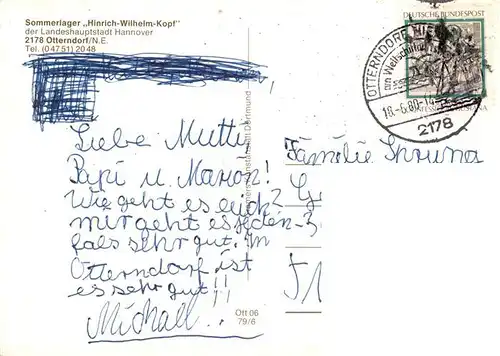 Sommerlager „Hinrich-Wilhelm-Kopf"
der Landeshauptstadt Hannover
2178 Otterndorf/N.E.
Tel. (0 47 51) 20 48
DEUTSCHE BUNDESPOST
OTTERNDORF NIE
am Weltschiffahrt
18.-6.80-1
2178
Liebe Mutti
Papi u. Maron!
Wie geht es euch?
mir geht es jeden-
fals sehr gut. In
Otterndorf ist
es sehr gut!!
Michael!!
Familie
G
Ott 06
79/6